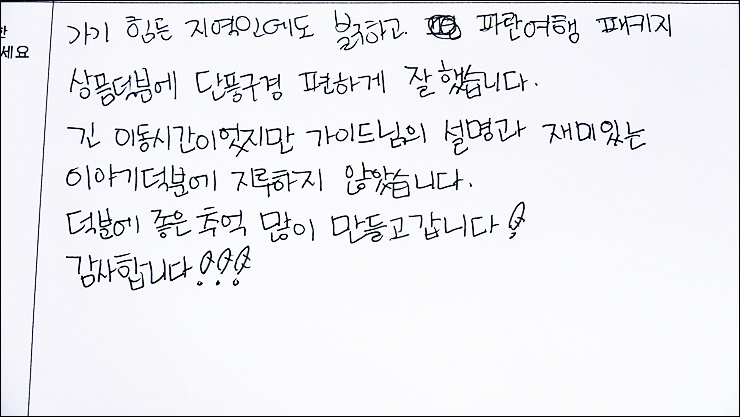 한
세요
가기 힘든 지역인에도 불구하고 파란여행 패키지
상품덕분에 단풍구경 편하게 잘 했습니다.
긴 이동시간이었지만 가이드님의 설명과 재미있는
이야기덕분에 지루하지 않았습니다.
덕분에 좋은 추억 많이 만들고갑니다!
감사합니다!!!